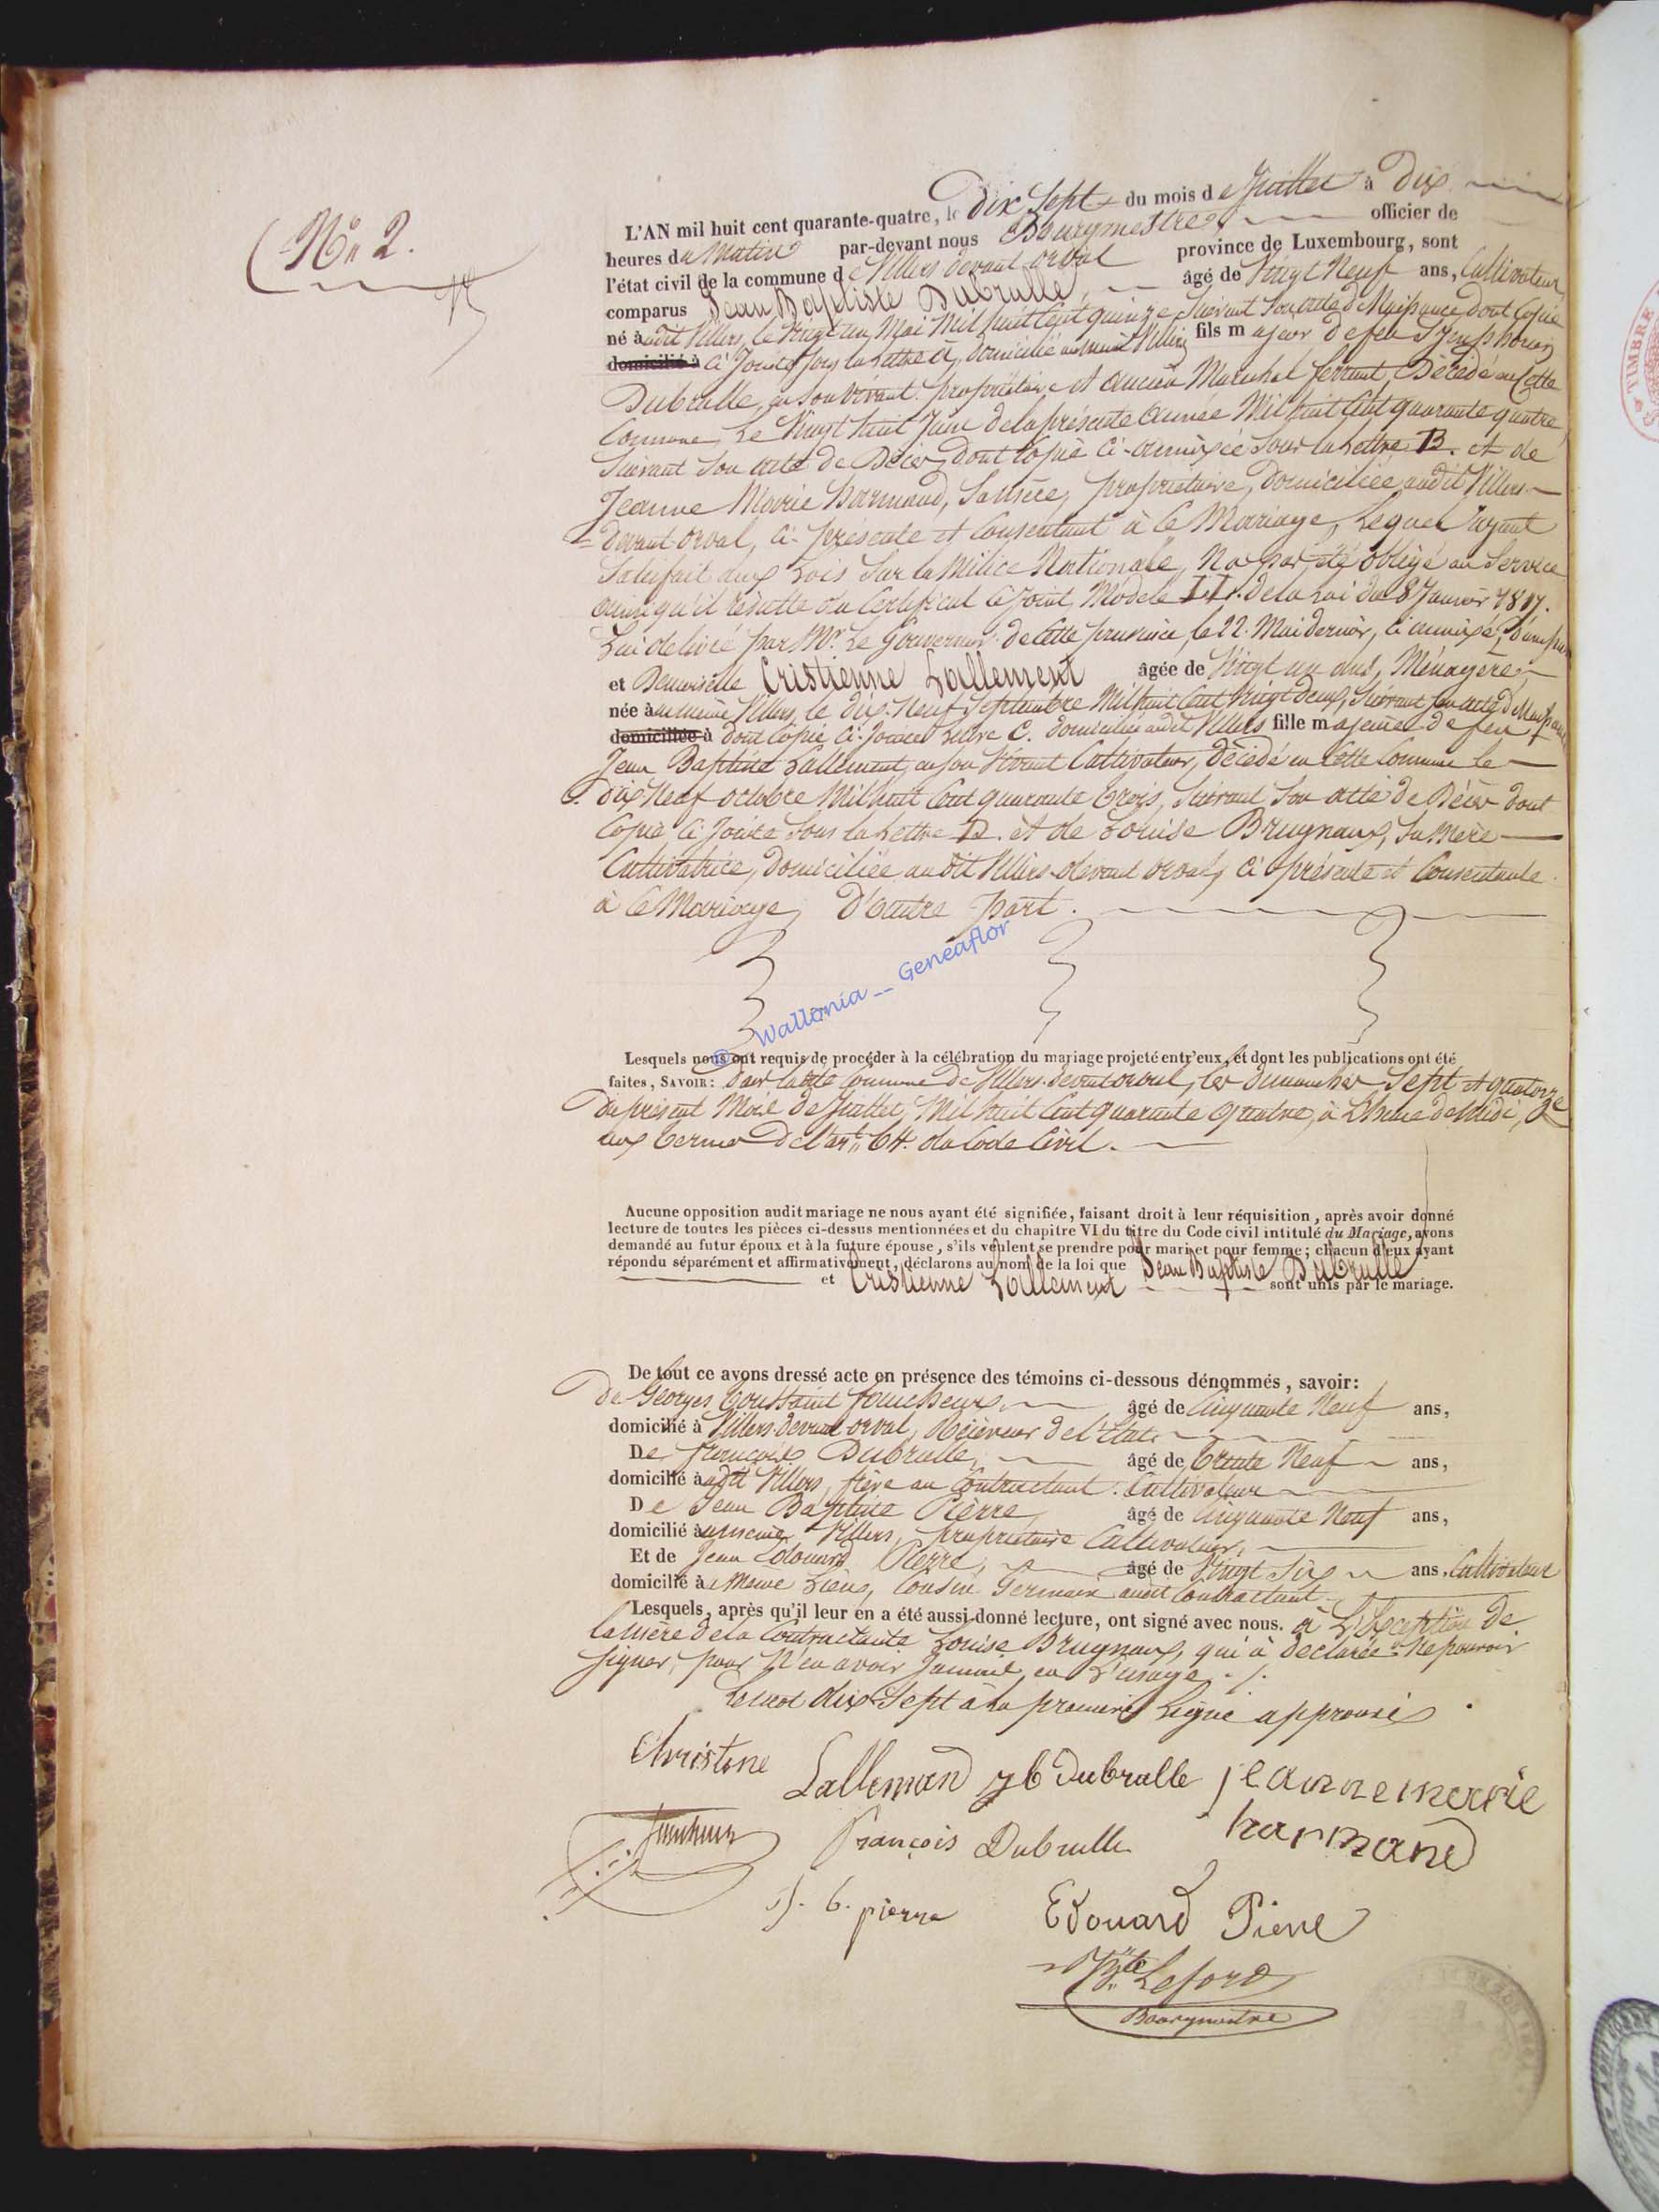 Nº 2.
L'AN mil huit cent quarante-quatre, le Dix Sept du mois de Juillet à Dix
heures du Matin par-devant nous Bourgmestre officier de
l'état civil de la commune de Villers devant orval province de Luxembourg, sont
comparus Jean Baptiste Dubrulle, âgé de Vingt Neuf ans, Cultivateur
né audit Villers, le Vingt un Mai Mil huit Cent quinze Suivant Son acte de Naissance dont Copie
domicilié à Ci Jointe Sous la Lettre A, domicilié au même Villers fils majeur de feu
Dubrulle, en Son Vivant propriétaire et ancien Maréchal ferrant, Décédé en Cette
Commune Le Vingt huit Juin de la présente Année Mil huit Cent quarante quatre,
Suivant Son acte de Décès, dont Copie Ci-annexée Sous la Lettre B. et de
Jeanne Marie Harmand, Sa Mère, propriétaire, Domiciliée audit Villers
devant-orval, Ci-présente et Consentant à Ce Mariage, Lequel ayant
Satisfait aux Lois Sur la Milice Nationale, N'a pas été obligé au Service
ainsi qu'il résulte du Certificat Ci Joint, Modèle II. de la Loi du 8 Janvier 1817.
Lui délivré par Mr. Le Gouverneur de Cette province, le 22 Mai dernier, Ci annexé, d'une part
et Demoiselle Cristienne Lallement âgée de Vingt un ans, Ménagère
née au même Villers, le dix Neuf Septembre Mil huit Cent Vingt deux, Suivant Son acte de Naissance
domiciliée à dont Copie Ci-Jointe Lettre C. domiciliée audit Villers fille majeure de feu
Jean Baptiste Lallement, en Son Vivant Cultivateur, décédé en Cette Commune le
dix Neuf octobre Mil huit Cent quarante trois, Suivant Son acte de Décès dont
Copie Ci Jointe Sous la Lettre D. et de Louise Brugnaux, Sa Mère
Cultivatrice, Domiciliée audit Villers devant orval, Ci présente et Consentante
à Ce Mariage, D'autre part.
© Wallonia -- Geneaflor
Lesquels nous ont requis de procéder à la célébration du mariage projeté entr'eux, et dont les publications ont été
faites, SAVOIR: dans la dite Commune de Villers devant orval, les dimanches Sept et quatorze
du présent Mois de Juillet, Mil huit Cent quarante quatre, à L'heure de Midi,
aux termes de l'art. 64. du Code Civil.
Aucune opposition audit mariage ne nous ayant été signifiée, faisant droit à leur réquisition, après avoir donné
lecture de toutes les pièces ci-dessus mentionnées et du chapitre VI du titre du Code civil intitulé du Mariage, avons
demandé au futur époux et à la future épouse, s'ils veulent se prendre pour mari et pour femme; chacun d'eux ayant
répondu séparément et affirmativement, déclarons au nom de la loi que Jean Baptiste Dubrulle
et Cristienne Lallement sont unis par le mariage.
De tout ce avons dressé acte en présence des témoins ci-dessous dénommés, savoir:
De Georges Toussaint foucheur âgé de Cinquante Neuf ans,
domicilié à Villers devant orval, Receveur de l'Etat.
De François Dubrulle, âgé de trente Neuf ans,
domicilié audit Villers, frère au Contractant. Cultivateur
De Jean Baptiste Pierre âgé de Cinquante Neuf ans,
domicilié au même Villers, propriétaire Cultivateur,
Et de Jean Edouard Pierre, âgé de Vingt Six ans, Cultivateur
domicilié à même Lieu, Cousin Germain audit Contractant
Lesquels, après qu'il leur en a été aussi donné lecture, ont signé avec nous. à L'Exception de
la mère de la Contractante Louise Brugnaux, qui à déclarée Ne pouvoir
signer, pour N'en avoir Jamais eu L'usage ./.
Le mot dix Sept à la première Ligne approuvé
Christine Lallemand J b Dubrulle jeanne marie
harmand
François Dubrulle
J. b. pierre Edouard Pierre
Lefort
Bourgmestre
TIMBRE